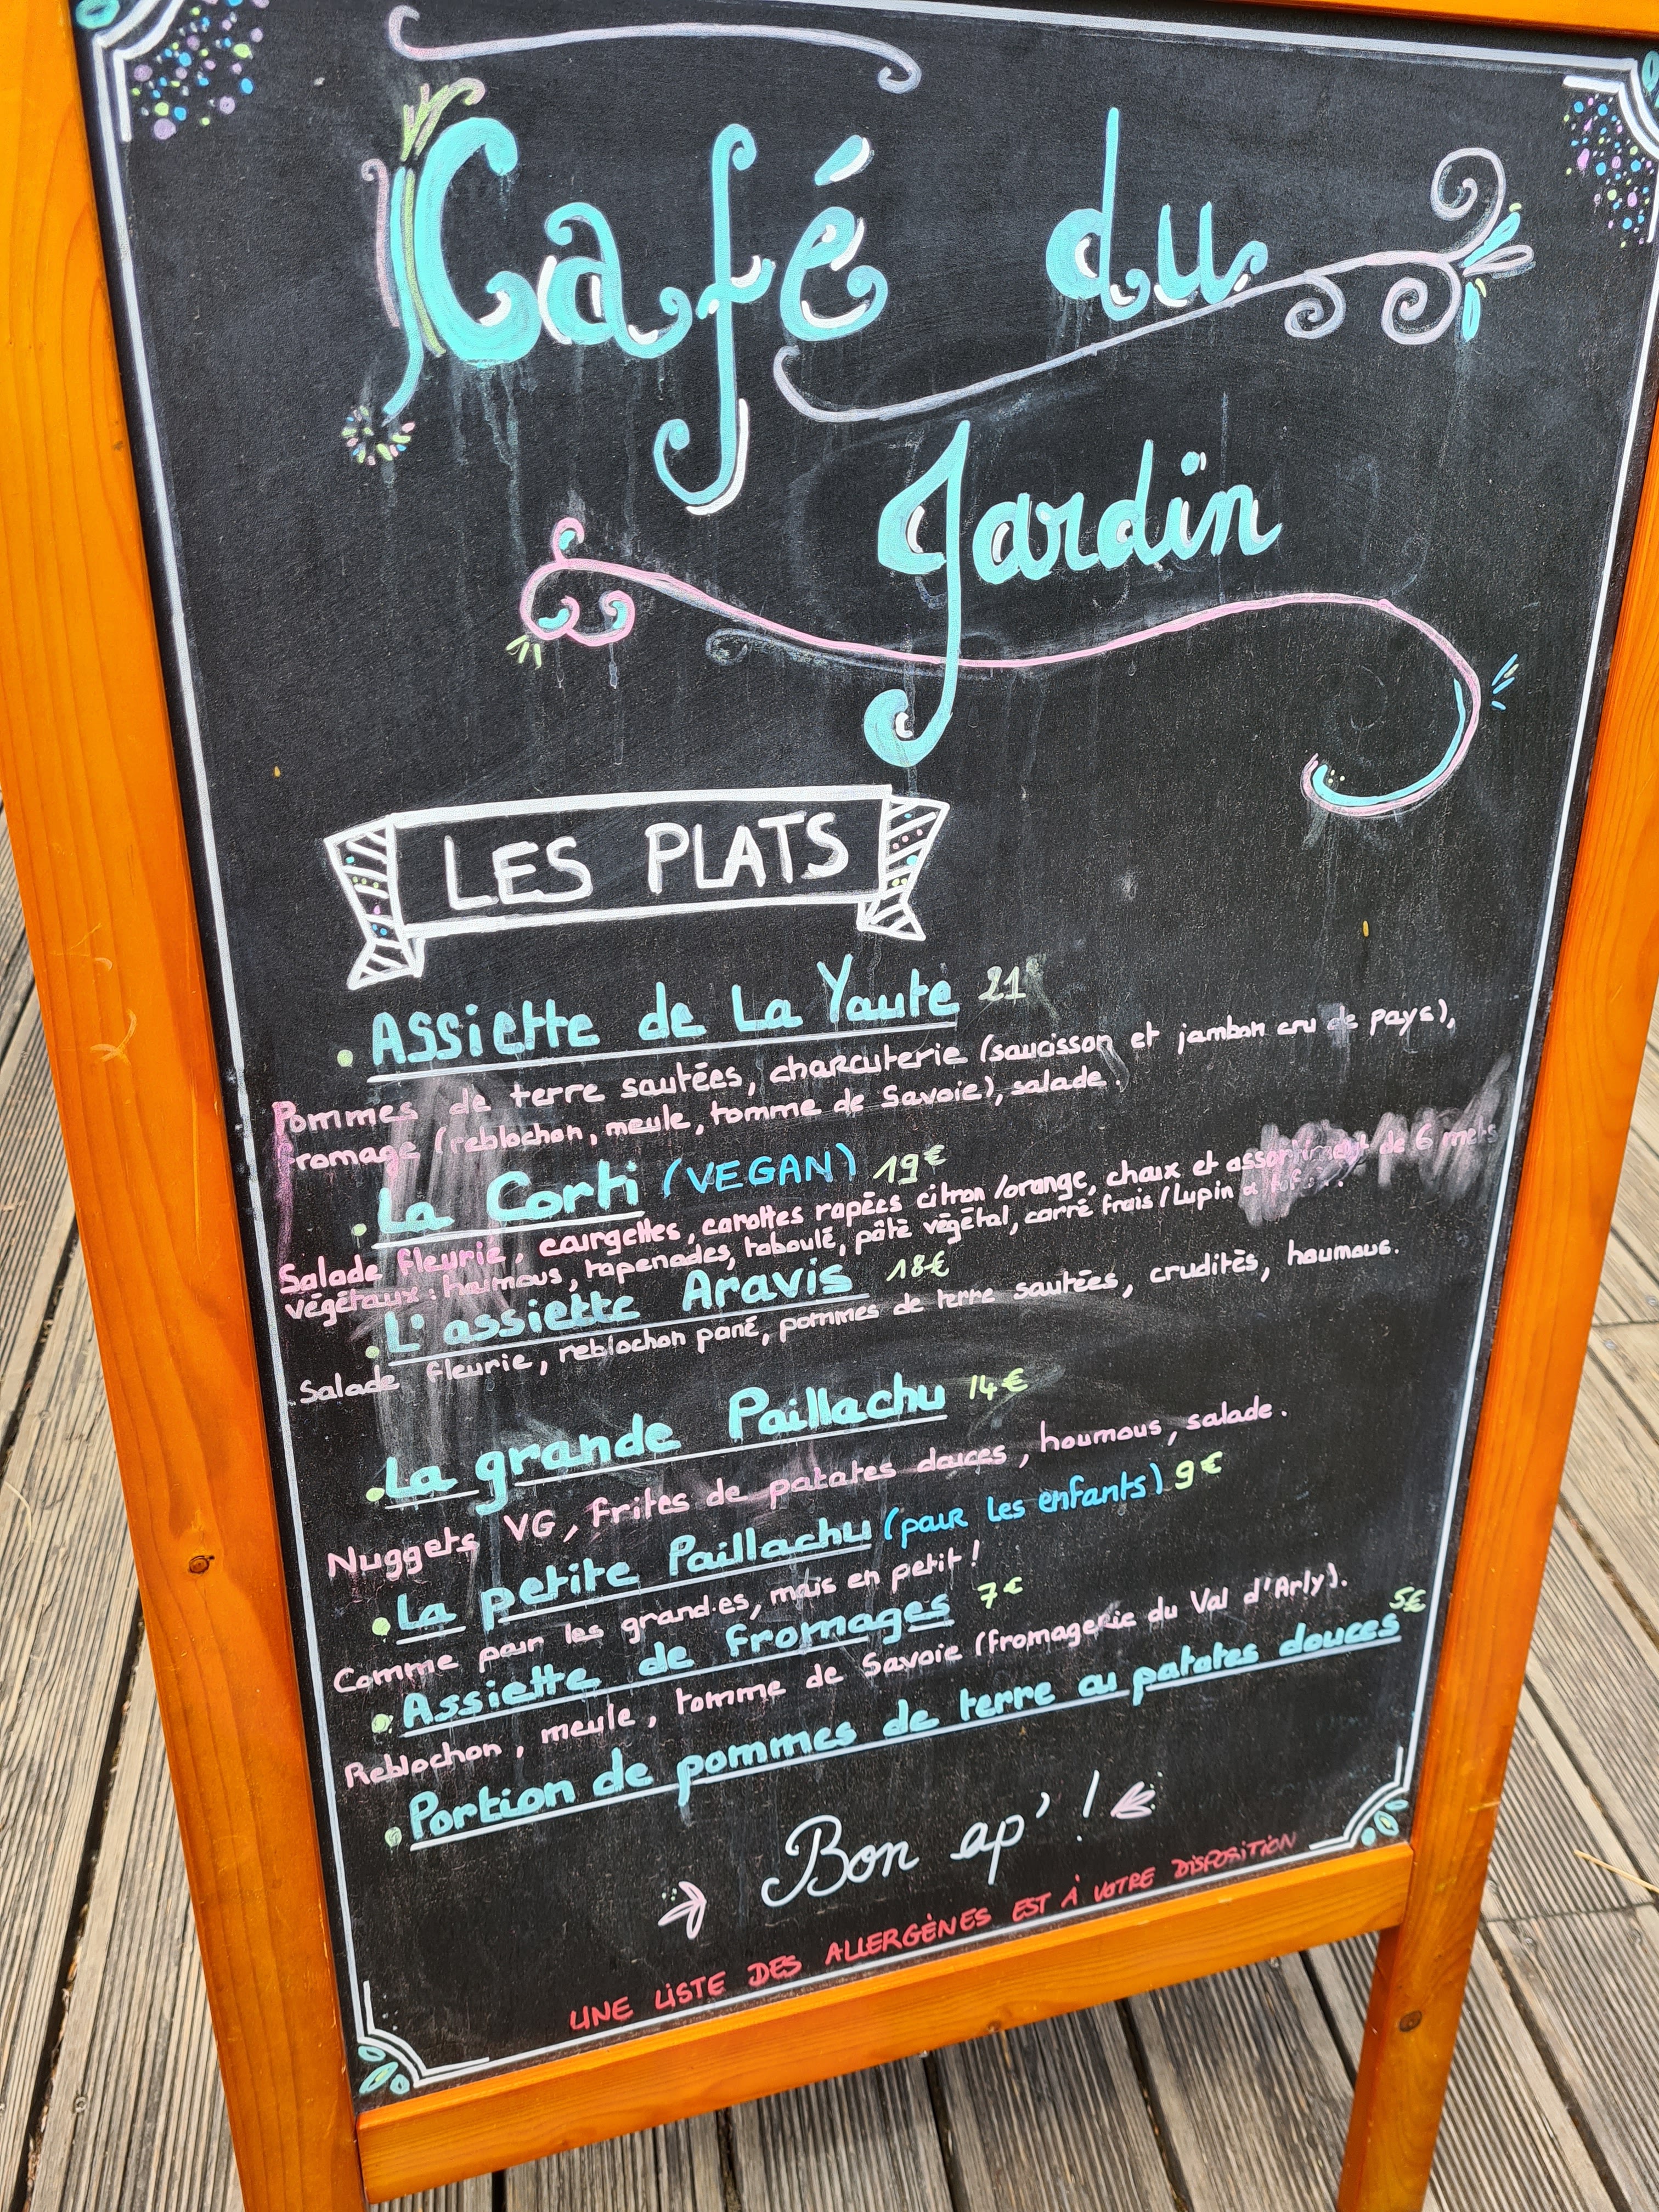 Café du
Jardin
LES PLATS
. Assiette de La Yaute 21
Pommes de terre sautées, charcuterie (saucisson et jambon cru de pays),
fromage (reblochon, meule, tomme de Savoie), salade.
. La Corti (VEGAN) 19€
Salade fleurie, courgettes, carottes rapées citron/orange, choux et assortiment de 6 mets
végétaux : houmous, tapenades, taboulé, pâté végétal, carré frais/Lupin
. L'assiette Aravis 18€
Salade fleurie, reblochon pané, pommes de terre sautées, crudités, houmous.
. La grande Paillachu 14€
Nuggets VG, frites de patates douces, houmous, salade.
. La petite Paillachu (pour les enfants) 9€
Comme pour les grand.es, mais en petit !
. Assiette de fromages 7€
Reblochon, meule, tomme de Savoie (fromagerie du Val d'Arly).
. Portion de pommes de terre ou patates douces 5€
Bon ap' !
UNE LISTE DES ALLERGÈNES EST À VOTRE DISPOSITION